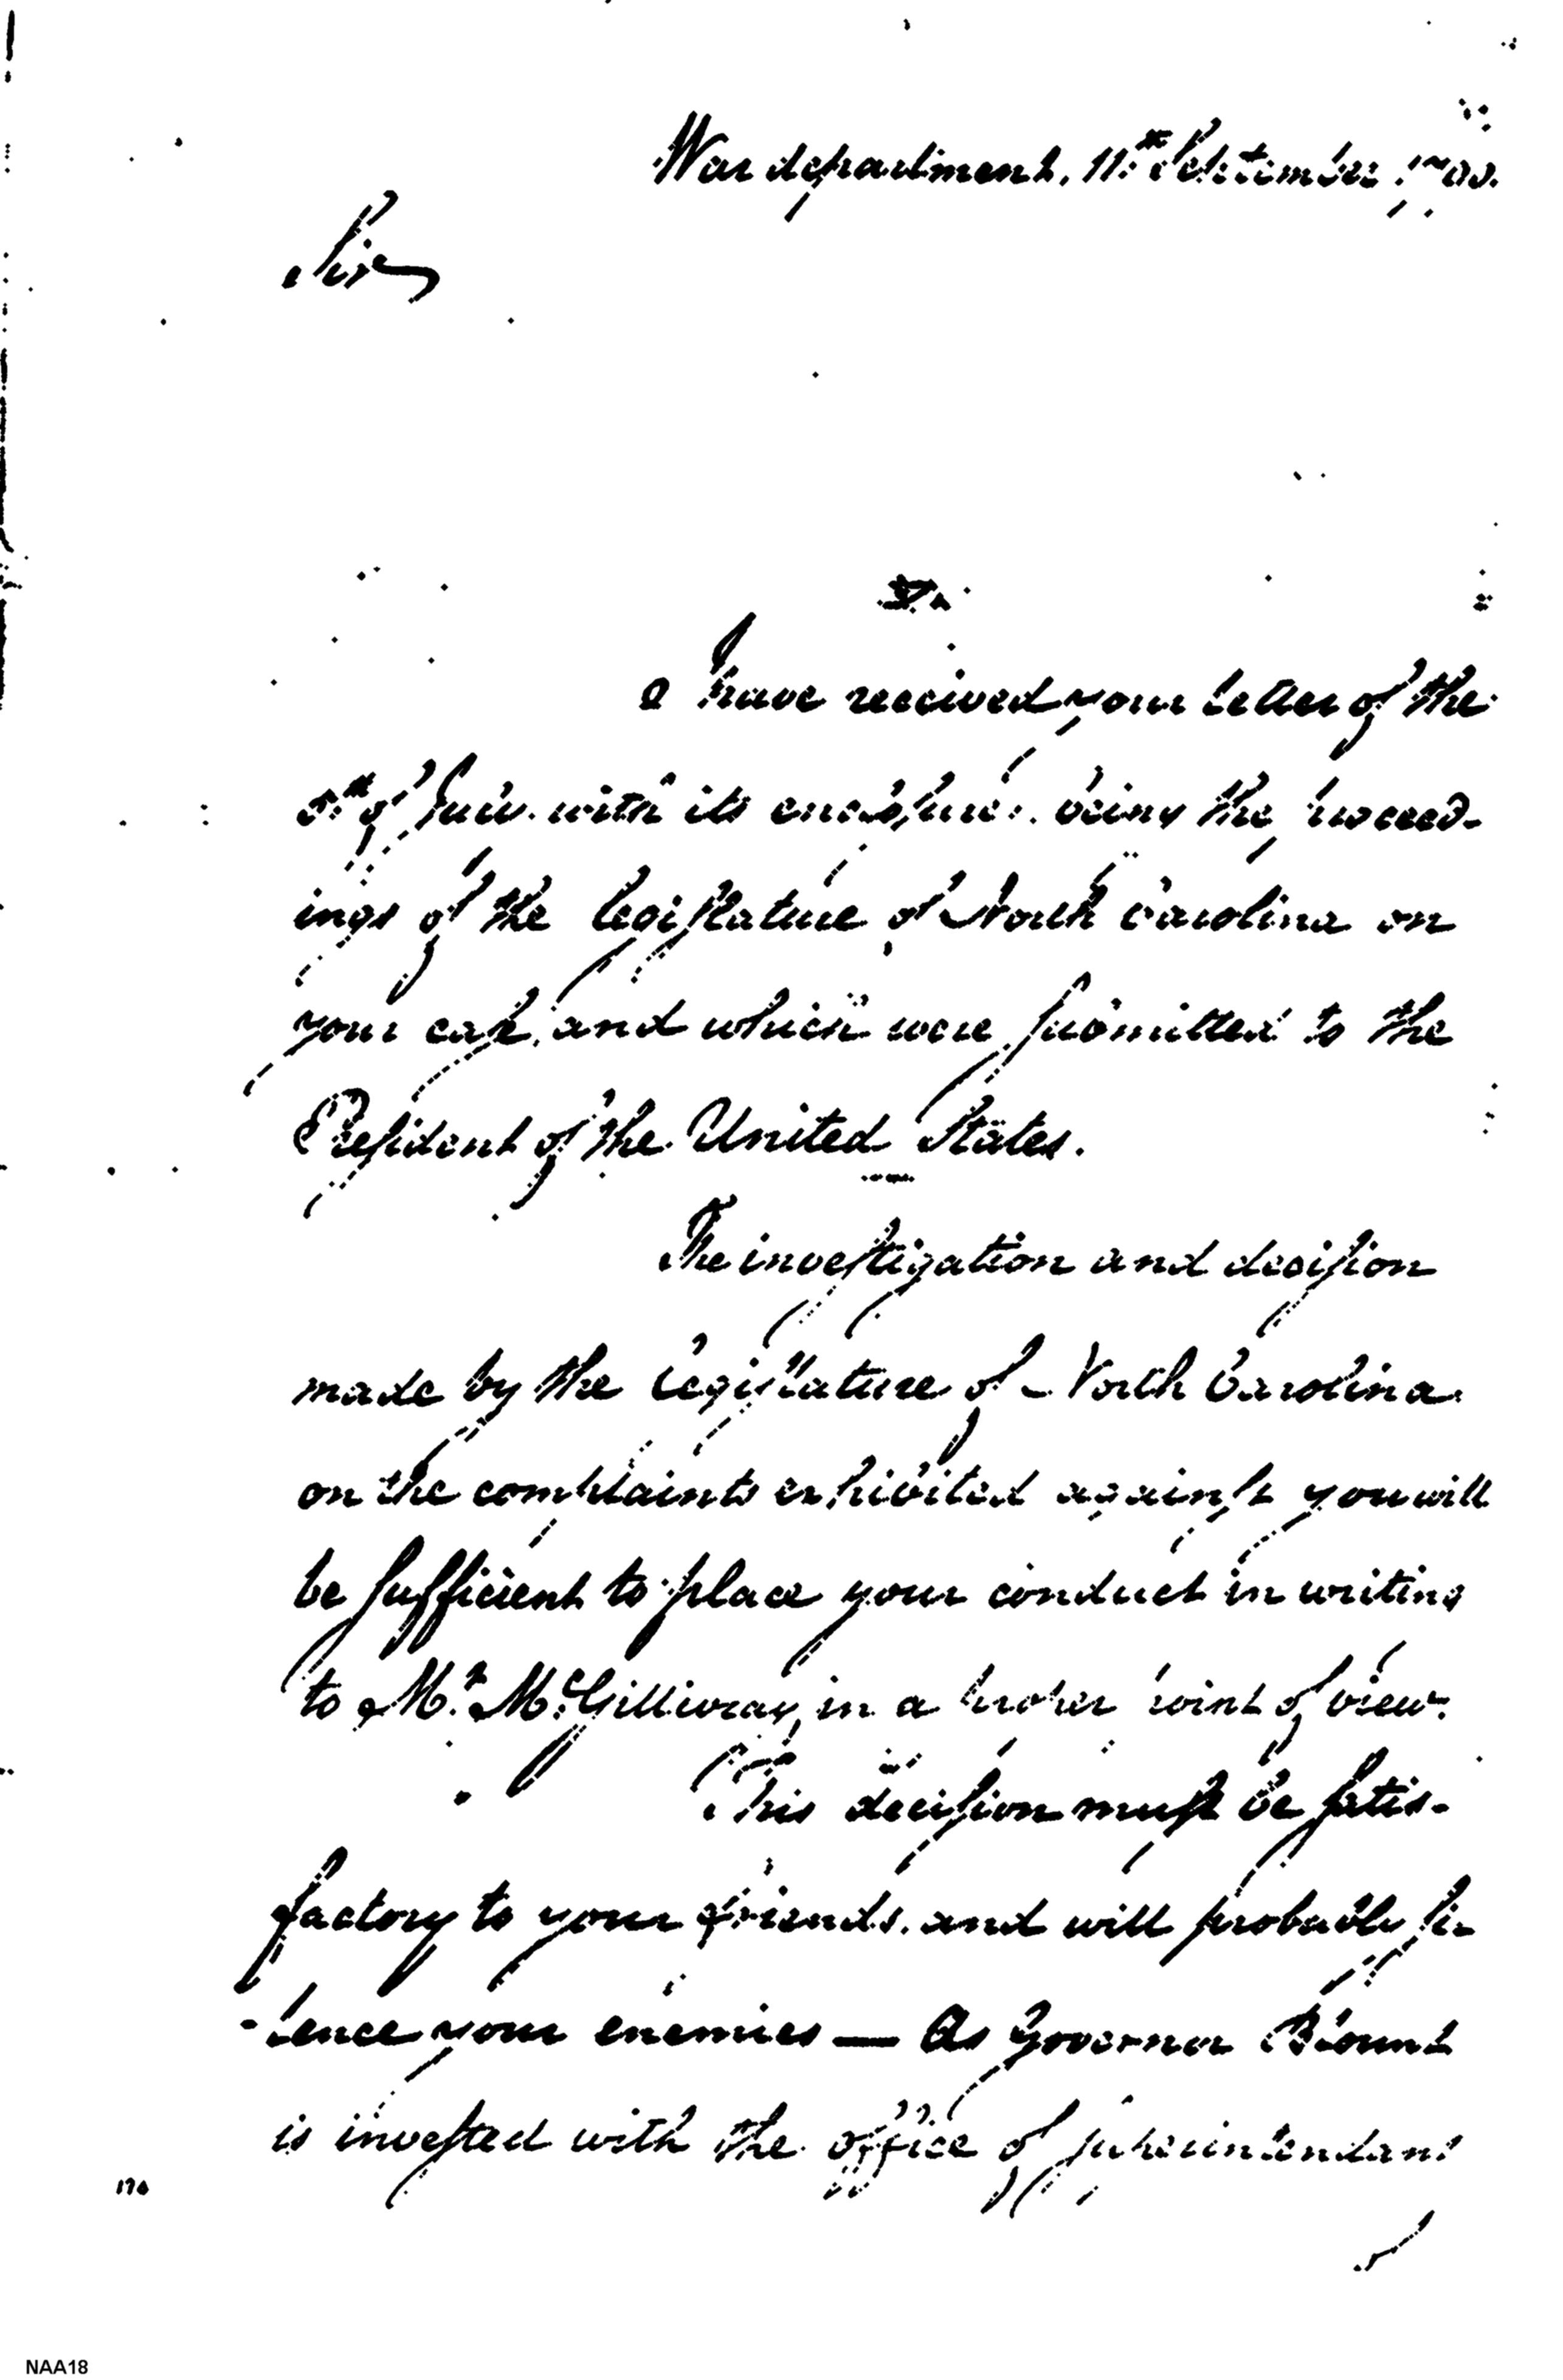 War department, 11th September
Sir
I have received your letter of the
5th of July with its enclosure, being the proceed-
ings of the legislature of North Carolina on
your case, and which were submitted to the
President of the United States.
The investigation and decision
made by the Legislature of North Carolina
on the complaints exhibited against you will
be sufficient to place your conduct in writing
to Mr. McGillivray, in a proper point of view.
This decision must be satis-
factory to your friends, and will probably si-
-lence your enemies — As Governor Blount
is invested with the office of superintendant
NAA18